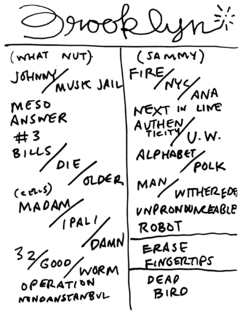 Brooklyn
(WHAT NUT)
JOHNNY/
MUSK JAIL
MESO
ANSWER
#3
BILLS/
DIE/
OLDER
MADAM/
IPALI/
DAMN
32/
GOOD/
WORM
OPERATION
(SAMMY)
FIRE/
NYC/
ANA
NEXT IN LINE
AUTHEN
TICITY/
U.W.
ALPHABET/
POLK
MAN/
WITHEREDED
UNPRONOUNCEABLE
ROBOT
ERASE
FINGERTIPS
DEAD
BIRD